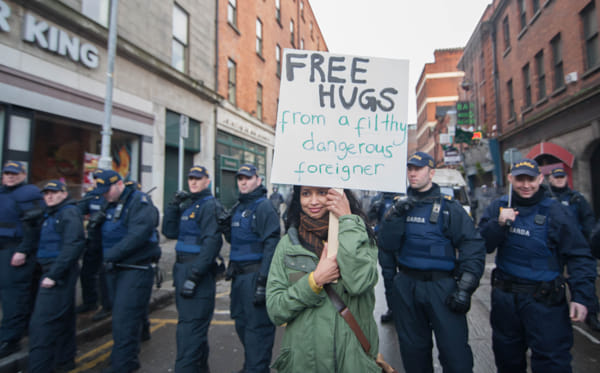 R KING
FREE
HUGS
from a filthy
dangerous
foreigner
GARDA
GARDA